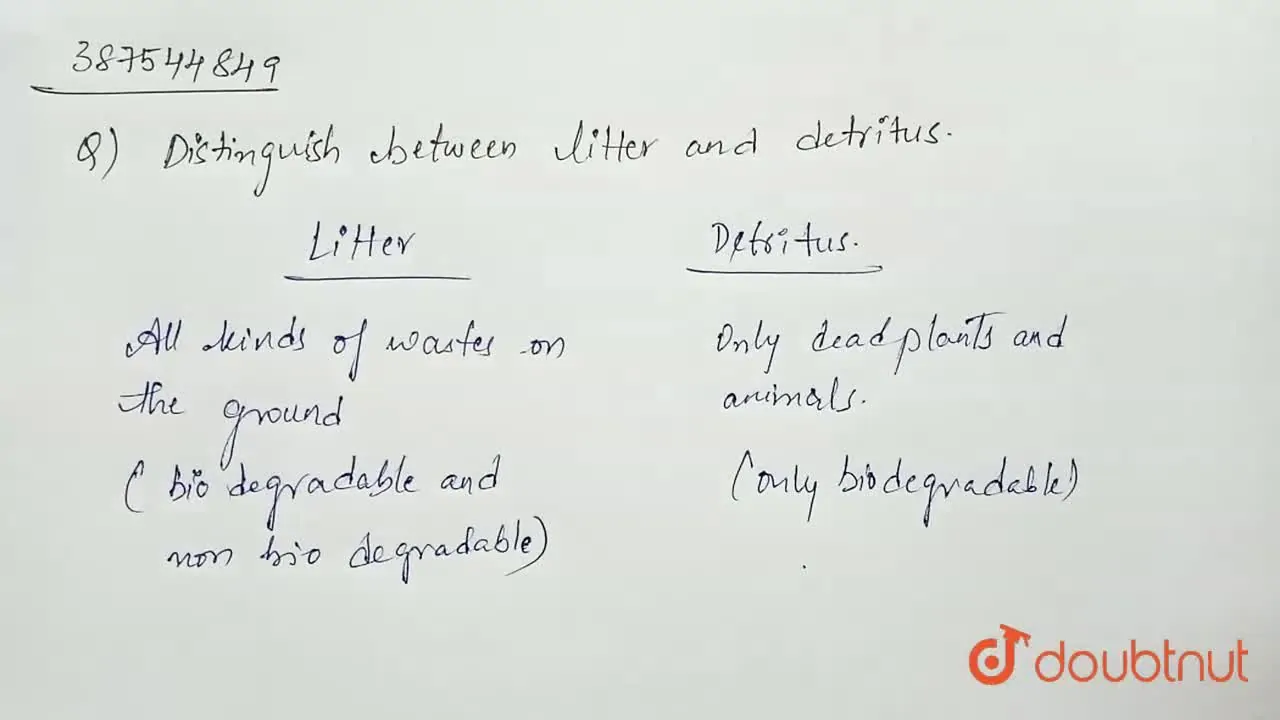 387544849
Q) Distinguish between litter and detritus.
Litter
Detritus.
All kinds of wastes on
the ground
(bio degradable and
non bio degradable)
Only dead plants and
animals.
(only biodegradable)
doubtnut